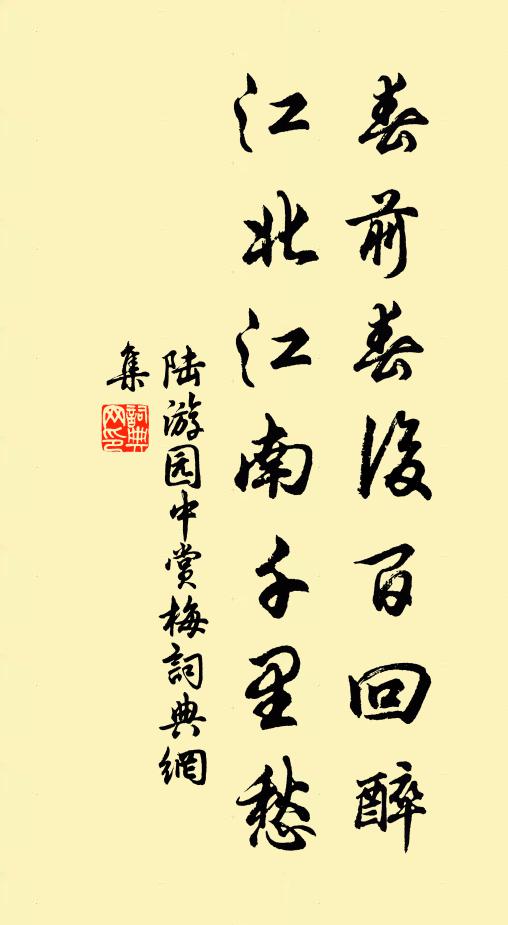 春前春後百回醉
江北江南千里愁
陆游园中赏梅詞典網
集
詞典网印